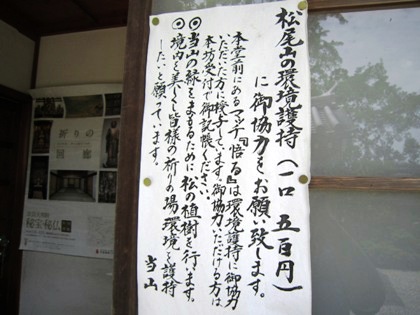 松尾山の環境護持（一口 五百円）
に御協力をお願い致します。
本堂前にあるマンガ『悟る』は環境護持に御協力
いただいた方に授与しています。御協力いただける方は
本坊受付で御記帳ください。
◎当山の緑をまもるために松の植樹を行います。
◎境内を美しく皆様の祈りの場、環境を護持
したいと願っています。
当山
祈りの
回廊
秘宝秘仏